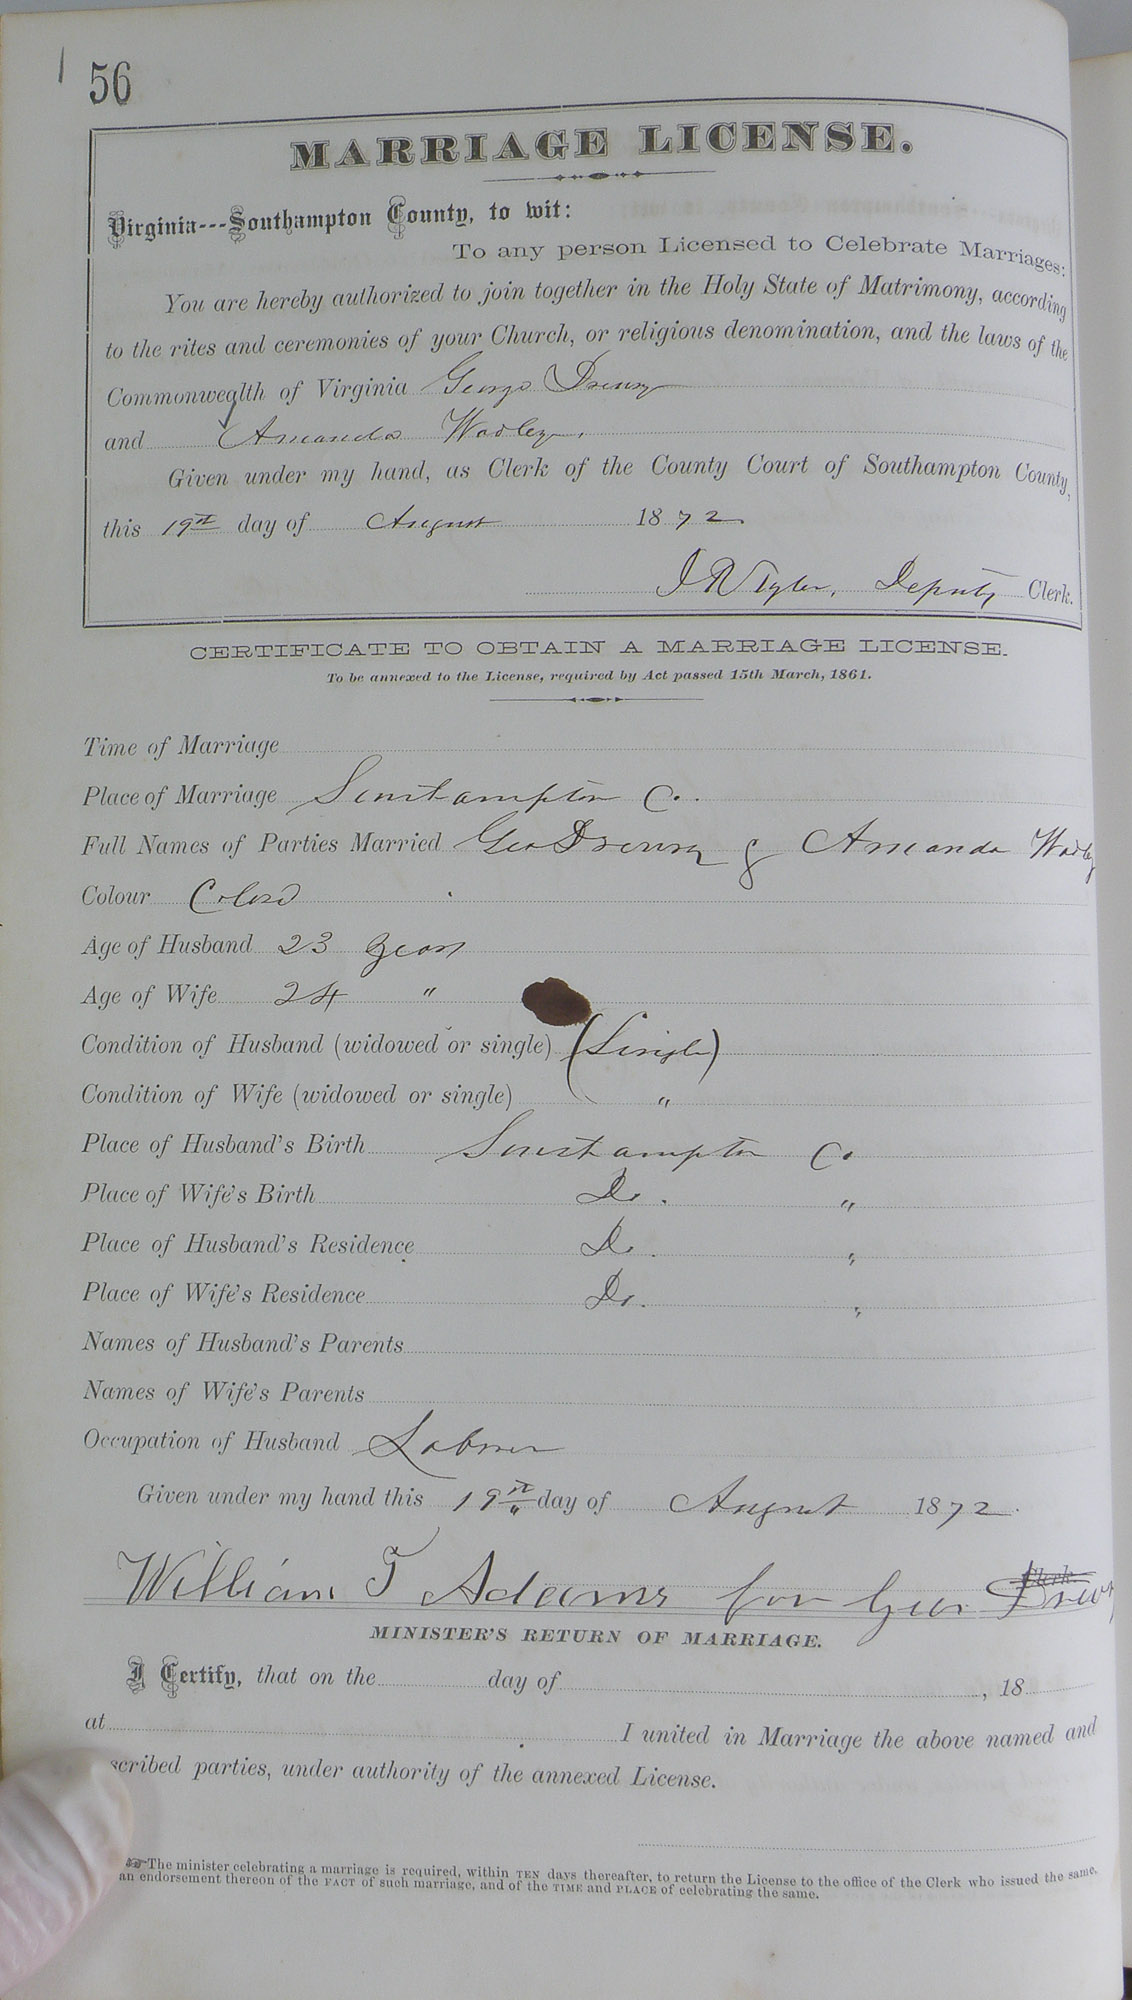 56
MARRIAGE LICENSE.
Virginia---Southampton County, to wit:
To any person Licensed to Celebrate Marriages:
You are hereby authorized to join together in the Holy State of Matrimony, according
to the rites and ceremonies of your Church, or religious denomination, and the laws of the
Commonwealth of Virginia George Drewry
and Amanda Wadley.
Given under my hand, as Clerk of the County Court of Southampton County,
this 19th day of August 1872
Deputy Clerk.
CERTIFICATE TO OBTAIN A MARRIAGE LICENSE.
To be annexed to the License, required by Act passed 15th March, 1861.
Time of Marriage
Place of Marriage Southampton Co.
Full Names of Parties Married Geo Drewry & Amanda Wadley
Colour Colord
Age of Husband 23 years
Age of Wife 24 "
Condition of Husband (widowed or single) (Single)
Condition of Wife (widowed or single) "
Place of Husband's Birth Southampton Co
Place of Wife's Birth Do. "
Place of Husband's Residence Do. "
Place of Wife's Residence Do. "
Names of Husband's Parents
Names of Wife's Parents
Occupation of Husband Laborer
Given under my hand this 19th day of August 1872.
William T Adams for Geo. Drewry Clerk.
MINISTER'S RETURN OF MARRIAGE.
I Certify, that on the day of , 18
at I united in Marriage the above named and
scribed parties, under authority of the annexed License.
☞The minister celebrating a marriage is required, within TEN days thereafter, to return the License to the office of the Clerk who issued the same,
an endorsement thereon of the FACT of such marriage, and of the TIME and PLACE of celebrating the same.